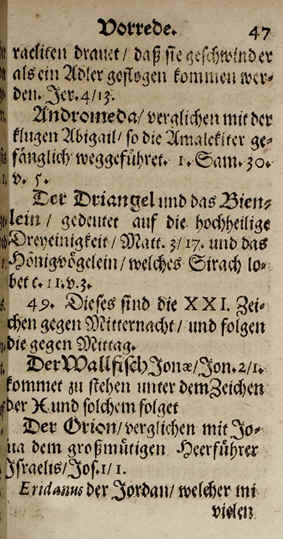 Vorrede. 47
raeliten drauet / daß sie geschwinder
als ein Adler geflogen kommen wer-
den. Jer. 4/13.
Andromeda / verglichen mit der
klugen Abigail / so die Amalekiter ge-
fänglich weggeführet. 1. Sam. 30.
v. 5.
Der Driangel und das Bien-
lein / gedeutet auf die hochheilige
Dreyeinigkeit / Matt. 3/17. und das
Hönigvögelein / welches Sirach lo-
bet c. 11. v. 3.
49. Dieses sind die XXI. Zei-
chen gegen Mitternacht / und folgen
die gegen Mittag.
Der Wallfisch Jonæ / Jon. 2/1.
kommet zu stehen unter dem Zeichen
der ♓ und solchem folget
Der Orion / verglichen mit Jo-
ua dem großmütigen Heerführer
Israelis / Jos. 1/1.
Eridanus der Jordan / welcher mi
vielen